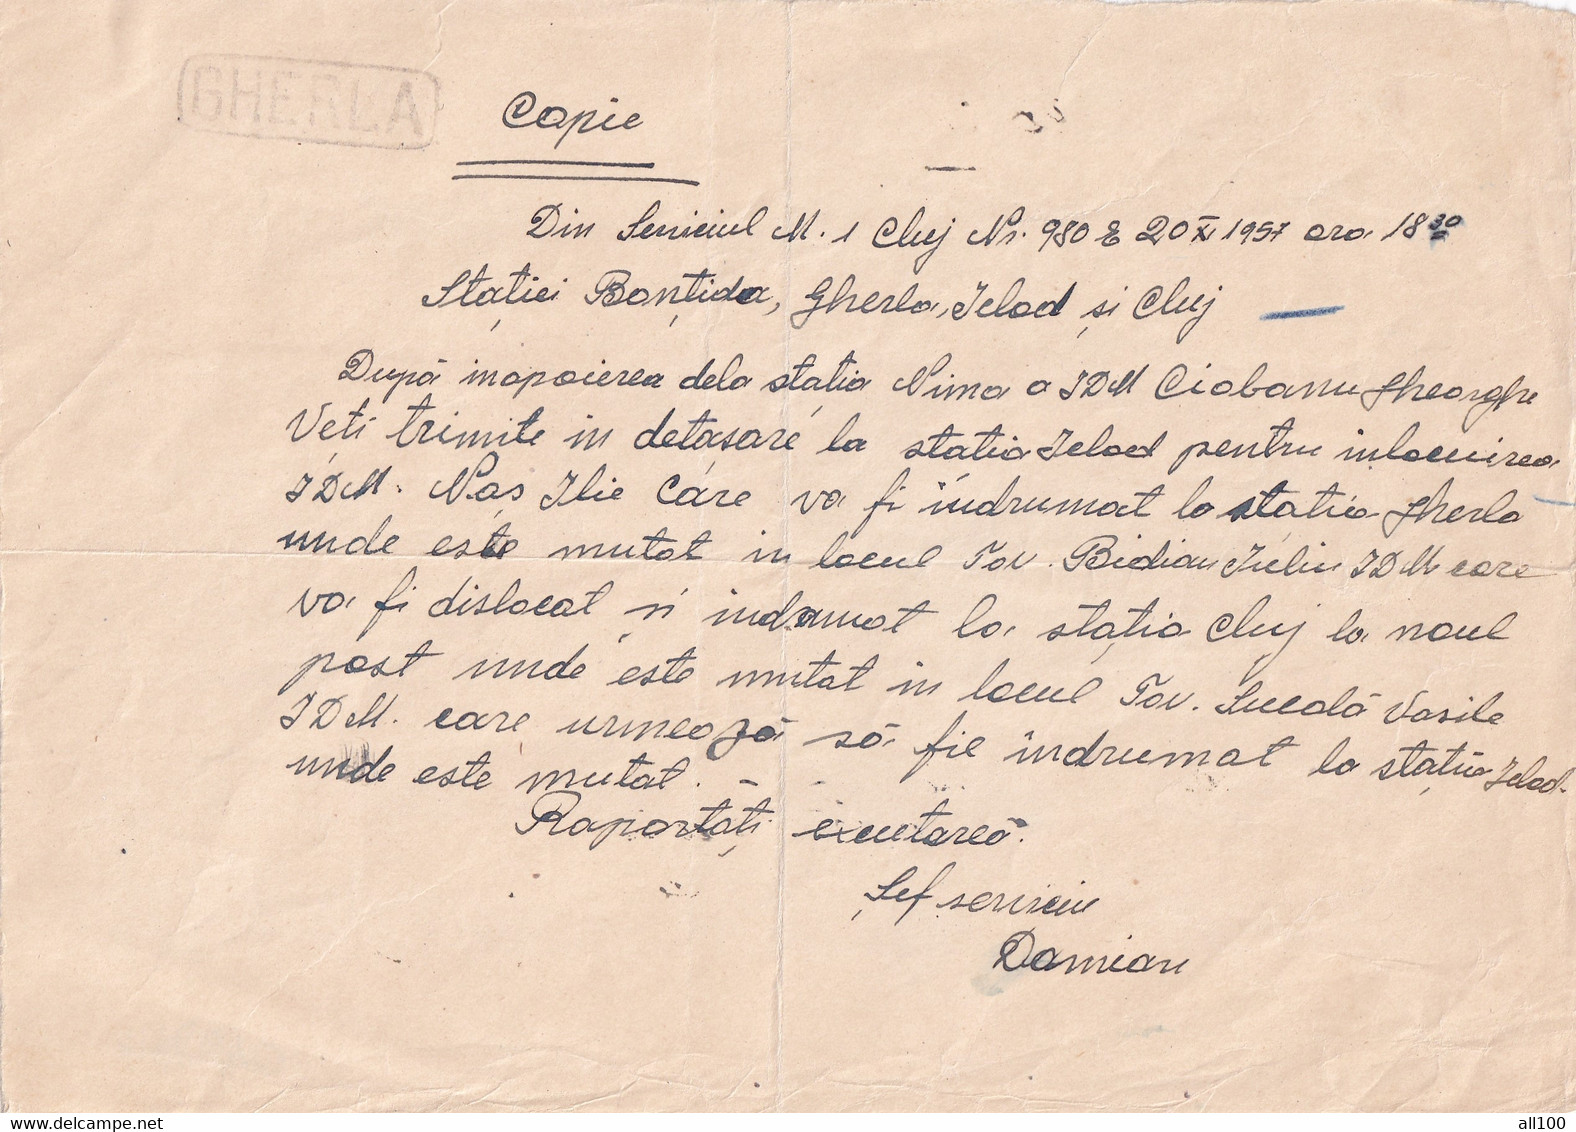 GHERLA
Copie
Din Serviciul M. 1 Cluj Nr. 980 E 20 XI 1957 ora 18 30
Stației Bonțida, Gherla, Iclod și Cluj
După inapoierea dela stația Nima a IDM Ciobanu Gheorghe
Veți trimite in detașare la statia Iclod pentru inlocuirea
IDM. Naș Ilie care va fi îndrumat la statia Gherla
unde este mutat in locul Tov. Bidian Iuliu IDM care
va fi dislocat și indrumat la stația Cluj la noul
post unde este mutat in locul Tov. Sucală Vasile
IDM. care urmează să fie îndrumat la stația Iclod.
unde este mutat. -
Raportați excutarea.
Șef serviciu
Damian
all100